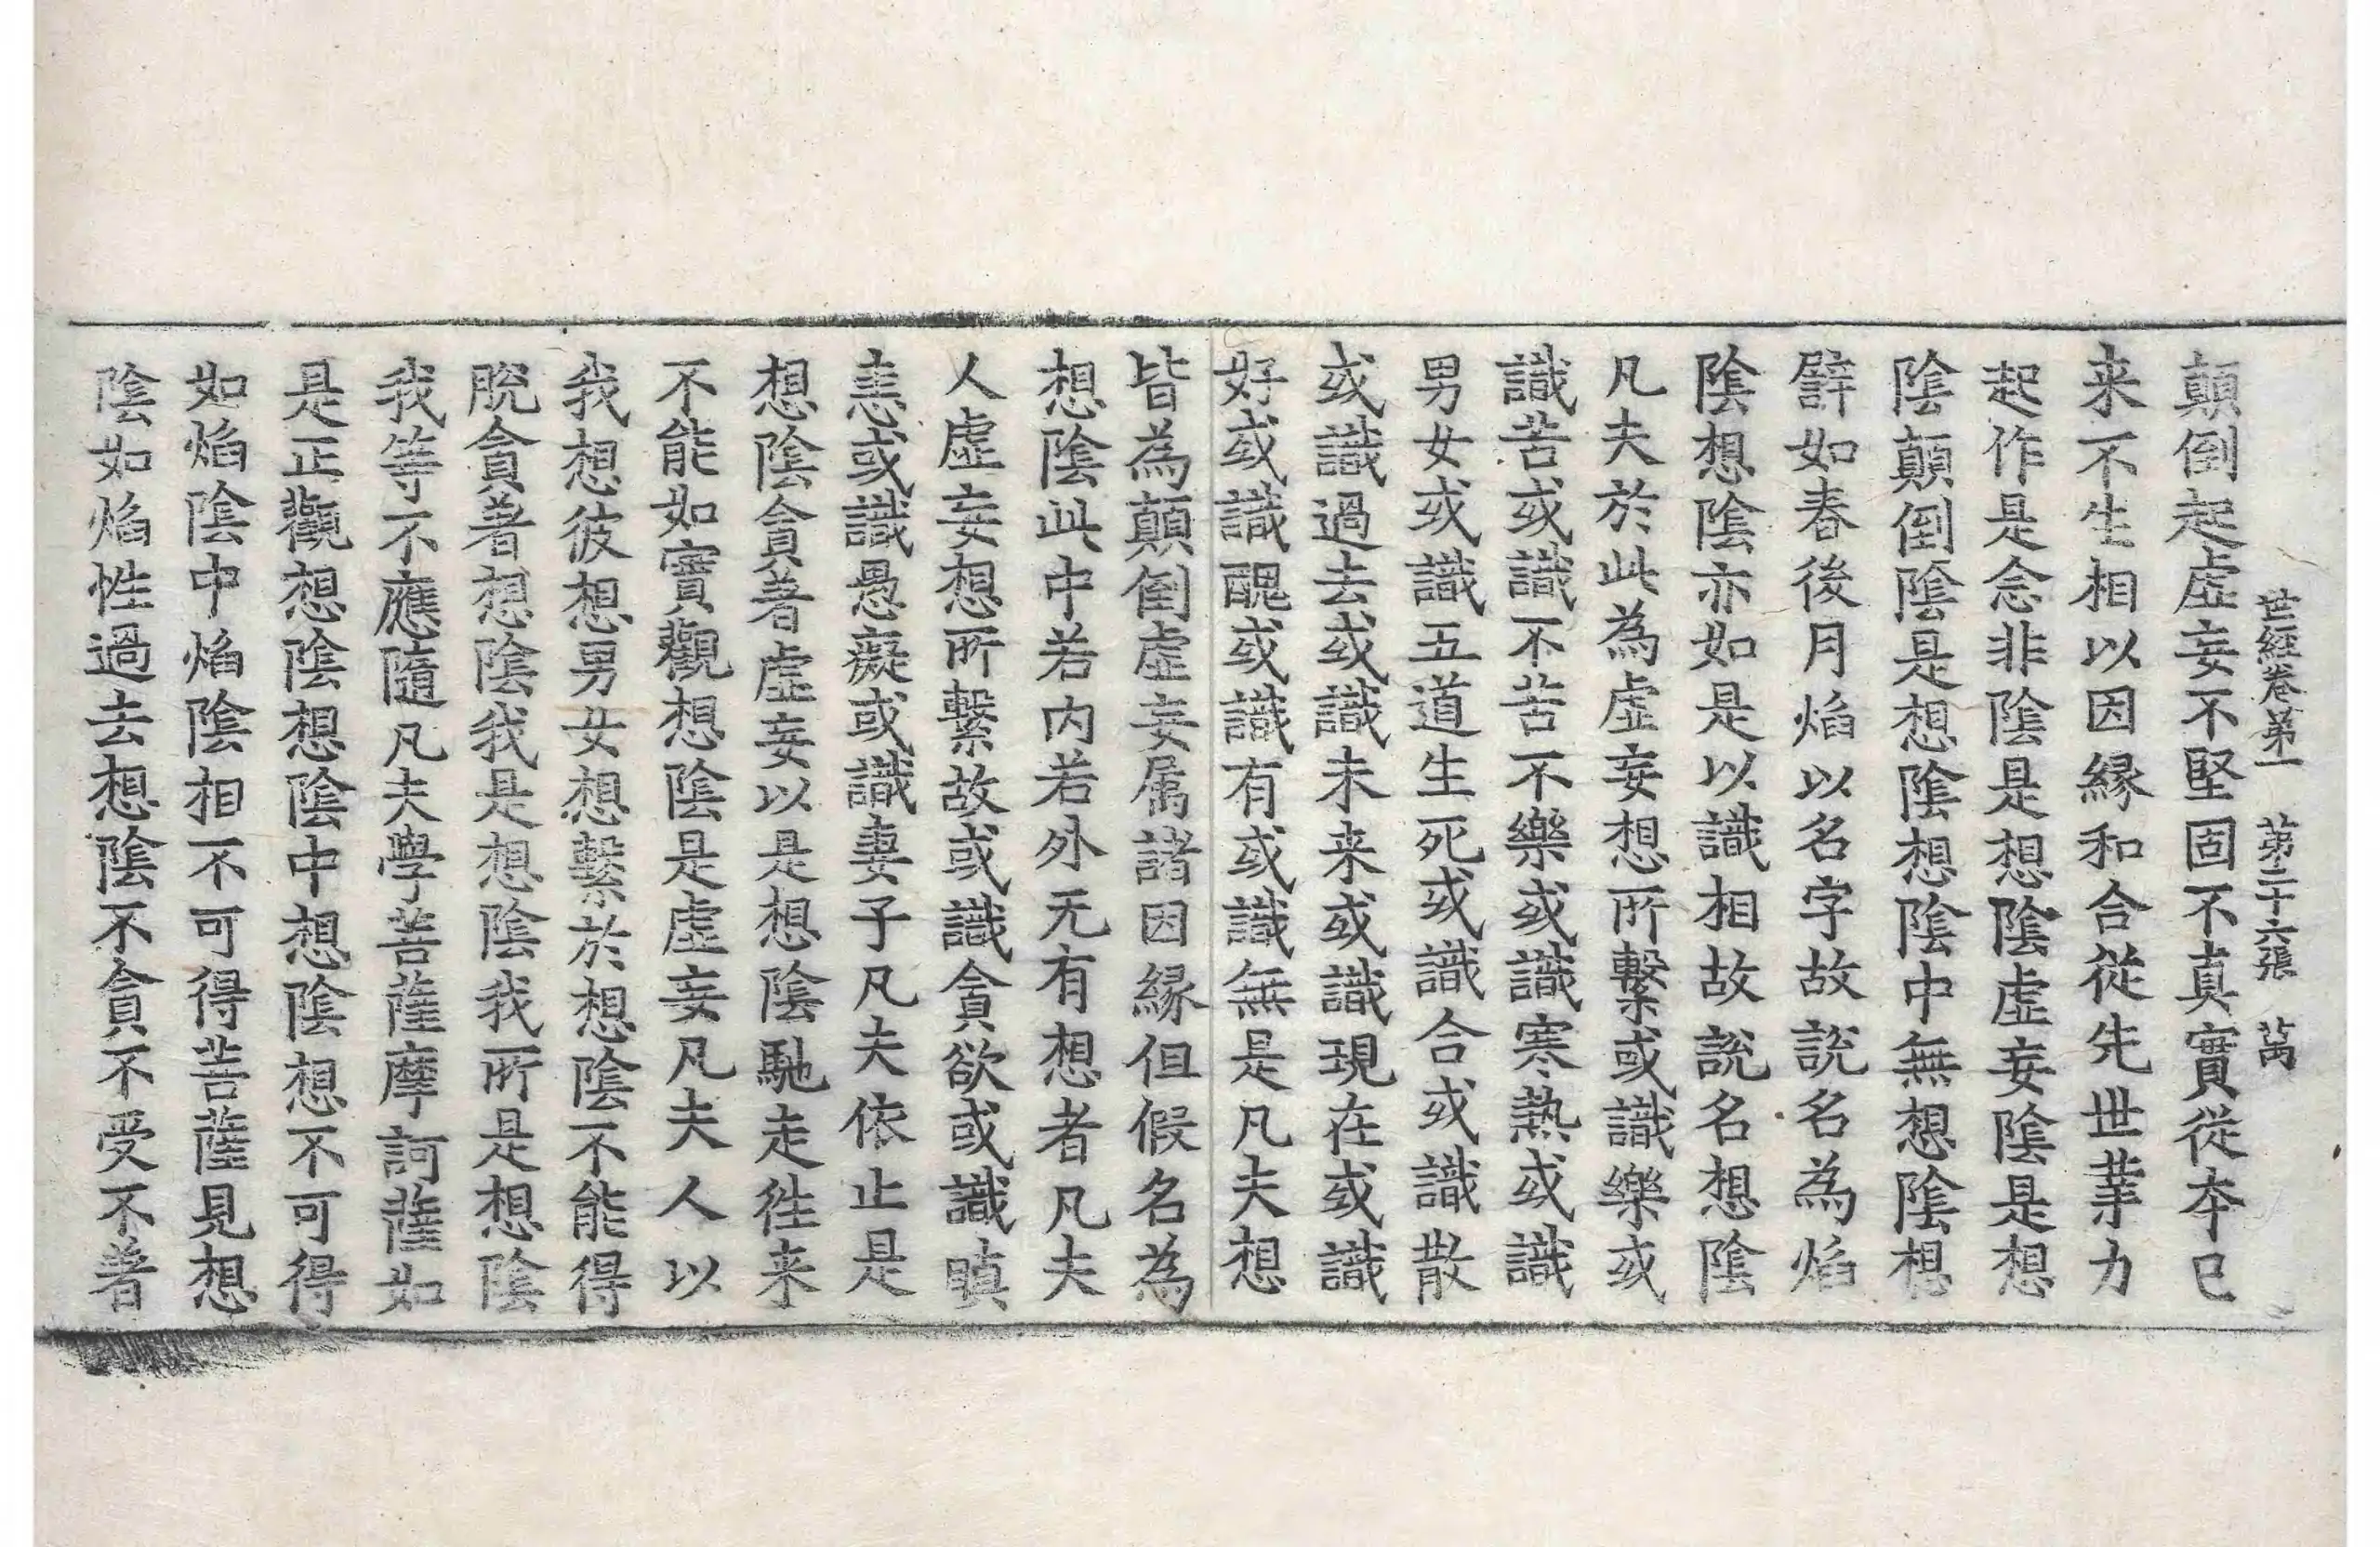 世經卷第一　第二十六張　萬
顛倒起虛妄不堅固不真實從本已
来不生相以因緣和合從先世業力
起作是念非陰是想陰虛妄陰是想
陰顛倒陰是想陰想陰中無想陰想
譬如春後月焰以名字故說名為焰
陰想陰亦如是以識相故說名想陰
凡夫於此為虛妄想所繫或識樂或
識苦或識不苦不樂或識寒熱或識
男女或識五道生死或識合或識散
或識過去或識未来或識現在或識
好或識醜或識有或識無是凡夫想
皆為顛倒虛妄属諸因緣但假名為
想陰此中若内若外无有想者凡夫
人虛妄想所繫故或識貪欲或識瞋
恚或識愚癡或識妻子凡夫依止是
想陰貪著虛妄以是想陰馳走徃来
不能如實觀想陰是虛妄凡夫人以
我想彼想男女想繫於想陰不能得
脫貪著想陰我是想陰我所是想陰
我等不應隨凡夫學菩薩摩訶薩如
是正觀想陰想陰中想陰想不可得
如焰陰中焰陰相不可得菩薩見想
陰如焰性過去想陰不貪不受不著